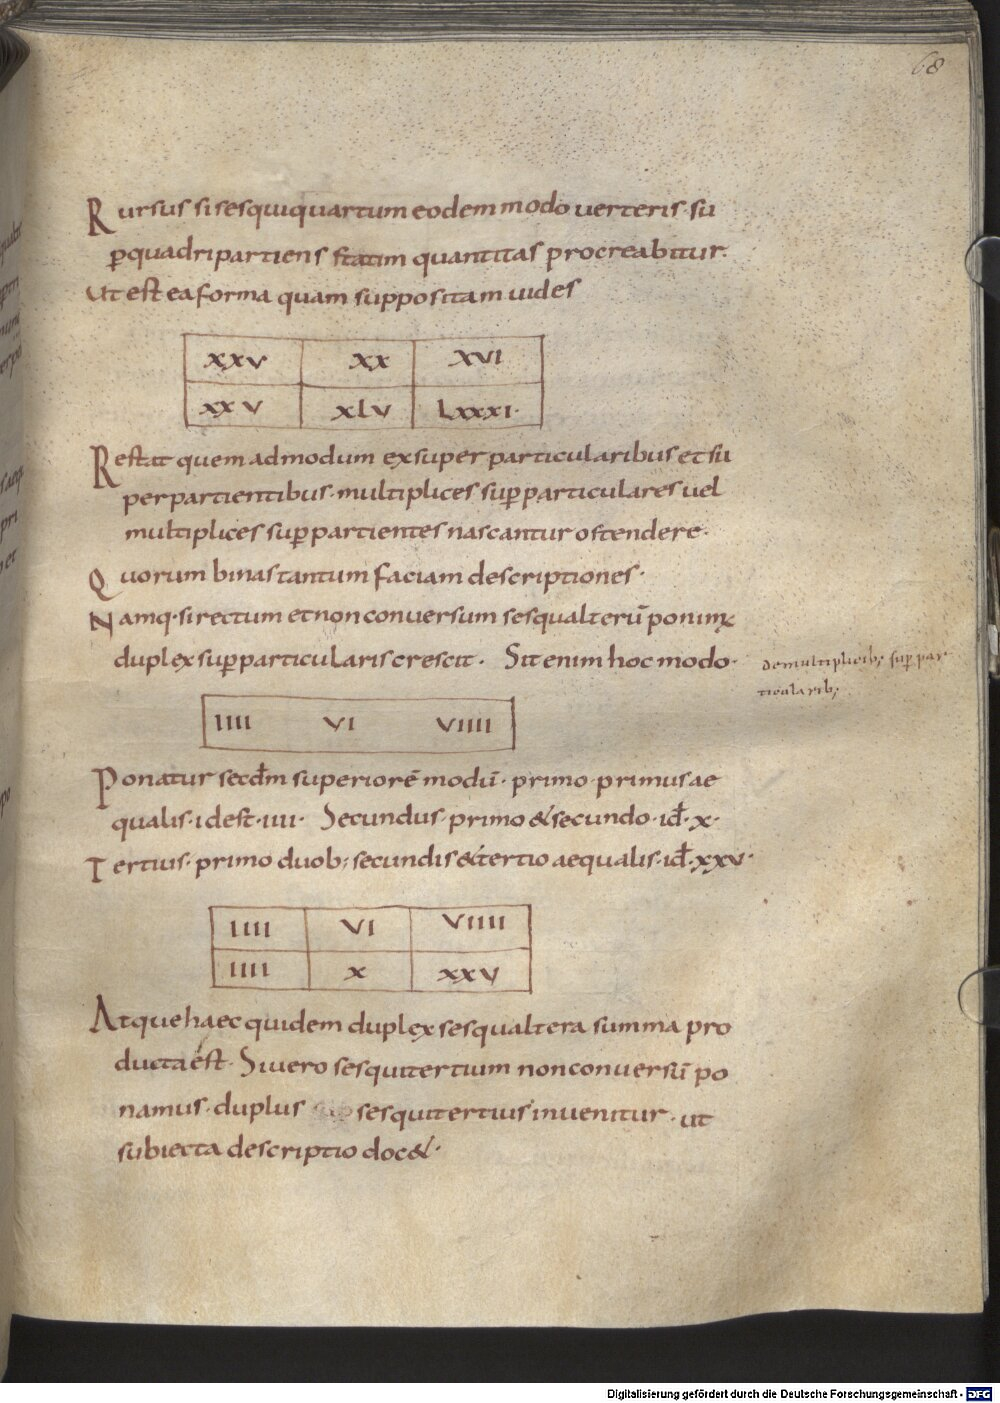 68
Rursus si sesquiquartum eodem modo uerteris· su
ꝑquadripartiens statim quantitas procreabitur.
Ut est ea forma quam suppositam uides
XXV XX XVI
XXV XLV LXXXI·
Restat quem ad modum ex super particularibus et su
perpartientibus· multiplices suꝑ particulares uel
multiplices suꝑ partientes nascantur ostendere·
Quorum binas tantum faciam descriptiones·
Namq· si rectum et non conversum sesqualterū ponim᷒
duplex suꝑparticularis crescit· Sit enim hoc modo·
de multiplicib; suꝑ par
ticularib;
IIII VI VIIII
Ponatur secdm̄ superiorē modū· primo· primus ae
qualis· id est· IIII· Secundus· primo & secundo· id̄· X·
Tertius· primo duob; secundis & tertio aequalis· id̄· XXV·
IIII VI VIIII
IIII X XXV
Atque haec quidem duplex sesqualtera summa pro
ducta est· Si uero sesquitertium non conversū po
namus· duplus sesquitertius inuenitur· ut
subiecta descriptio doc&·
Digitalisierung gefördert durch die Deutsche Forschungsgemeinschaft - DFG